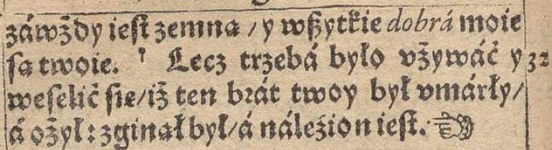 záwżdy ieſt zemna / y wßytkie dobrá moie
ſa twoie. Lecz trzebá było vżywáć y 32
weſelić ſie / iż ten brát twoy był vmárły /
á ożył : zginął był / á náleźion ieſt. ☜